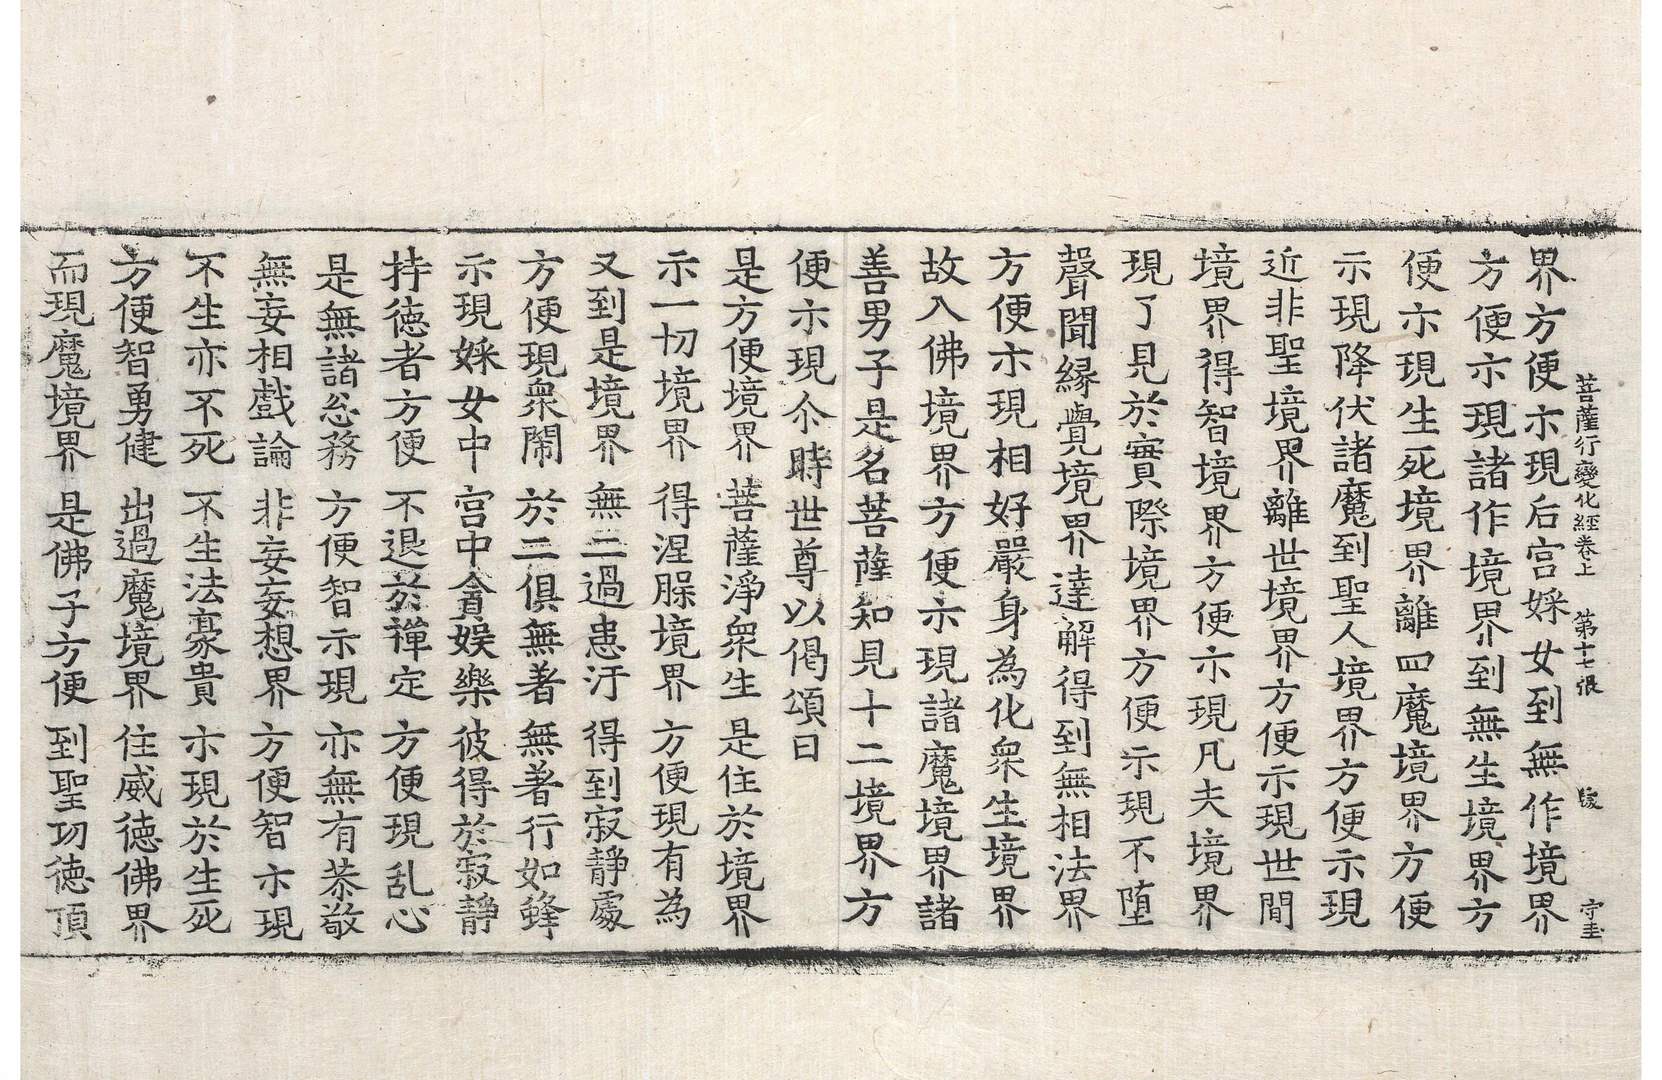 菩薩行變化經卷上 第十七張 守圭
界方便示現后宮婇女到無作境界
方便示現諸作境界到無生境界方
便示現生死境界離四魔境界方便
示現降伏諸魔到聖人境界方便示現
近非聖境界離世境界方便示現世間
境界得智境界方便示現凡夫境界
現了見於實際境界方便示現不墮
聲聞縁覺境界達解得到無相法界
方便示現相好嚴身為化衆生境界
故入佛境界方便示現諸魔境界諸
善男子是名菩薩知見十二境界方
便示現尒時世尊以偈頌曰
是方便境界 菩薩淨衆生 是住於境界
示一切境界 得涅槃境界 方便現有為
又到是境界 無二過患汙 得到寂靜處
方便現衆閙 於二俱無著 無著行如蜂
示現婇女中 宮中貪娛樂 彼得於寂靜
持徳者方便 不退於禪定 方便現乱心
是無諸忩務 方便智示現 亦無有恭敬
無妄相戲論 非妄妄想界 方便智示現
不生亦不死 不生法豪貴 示現於生死
方便智勇健 出過魔境界 住威徳佛界
而現魔境界 是佛子方便 到聖功徳頂